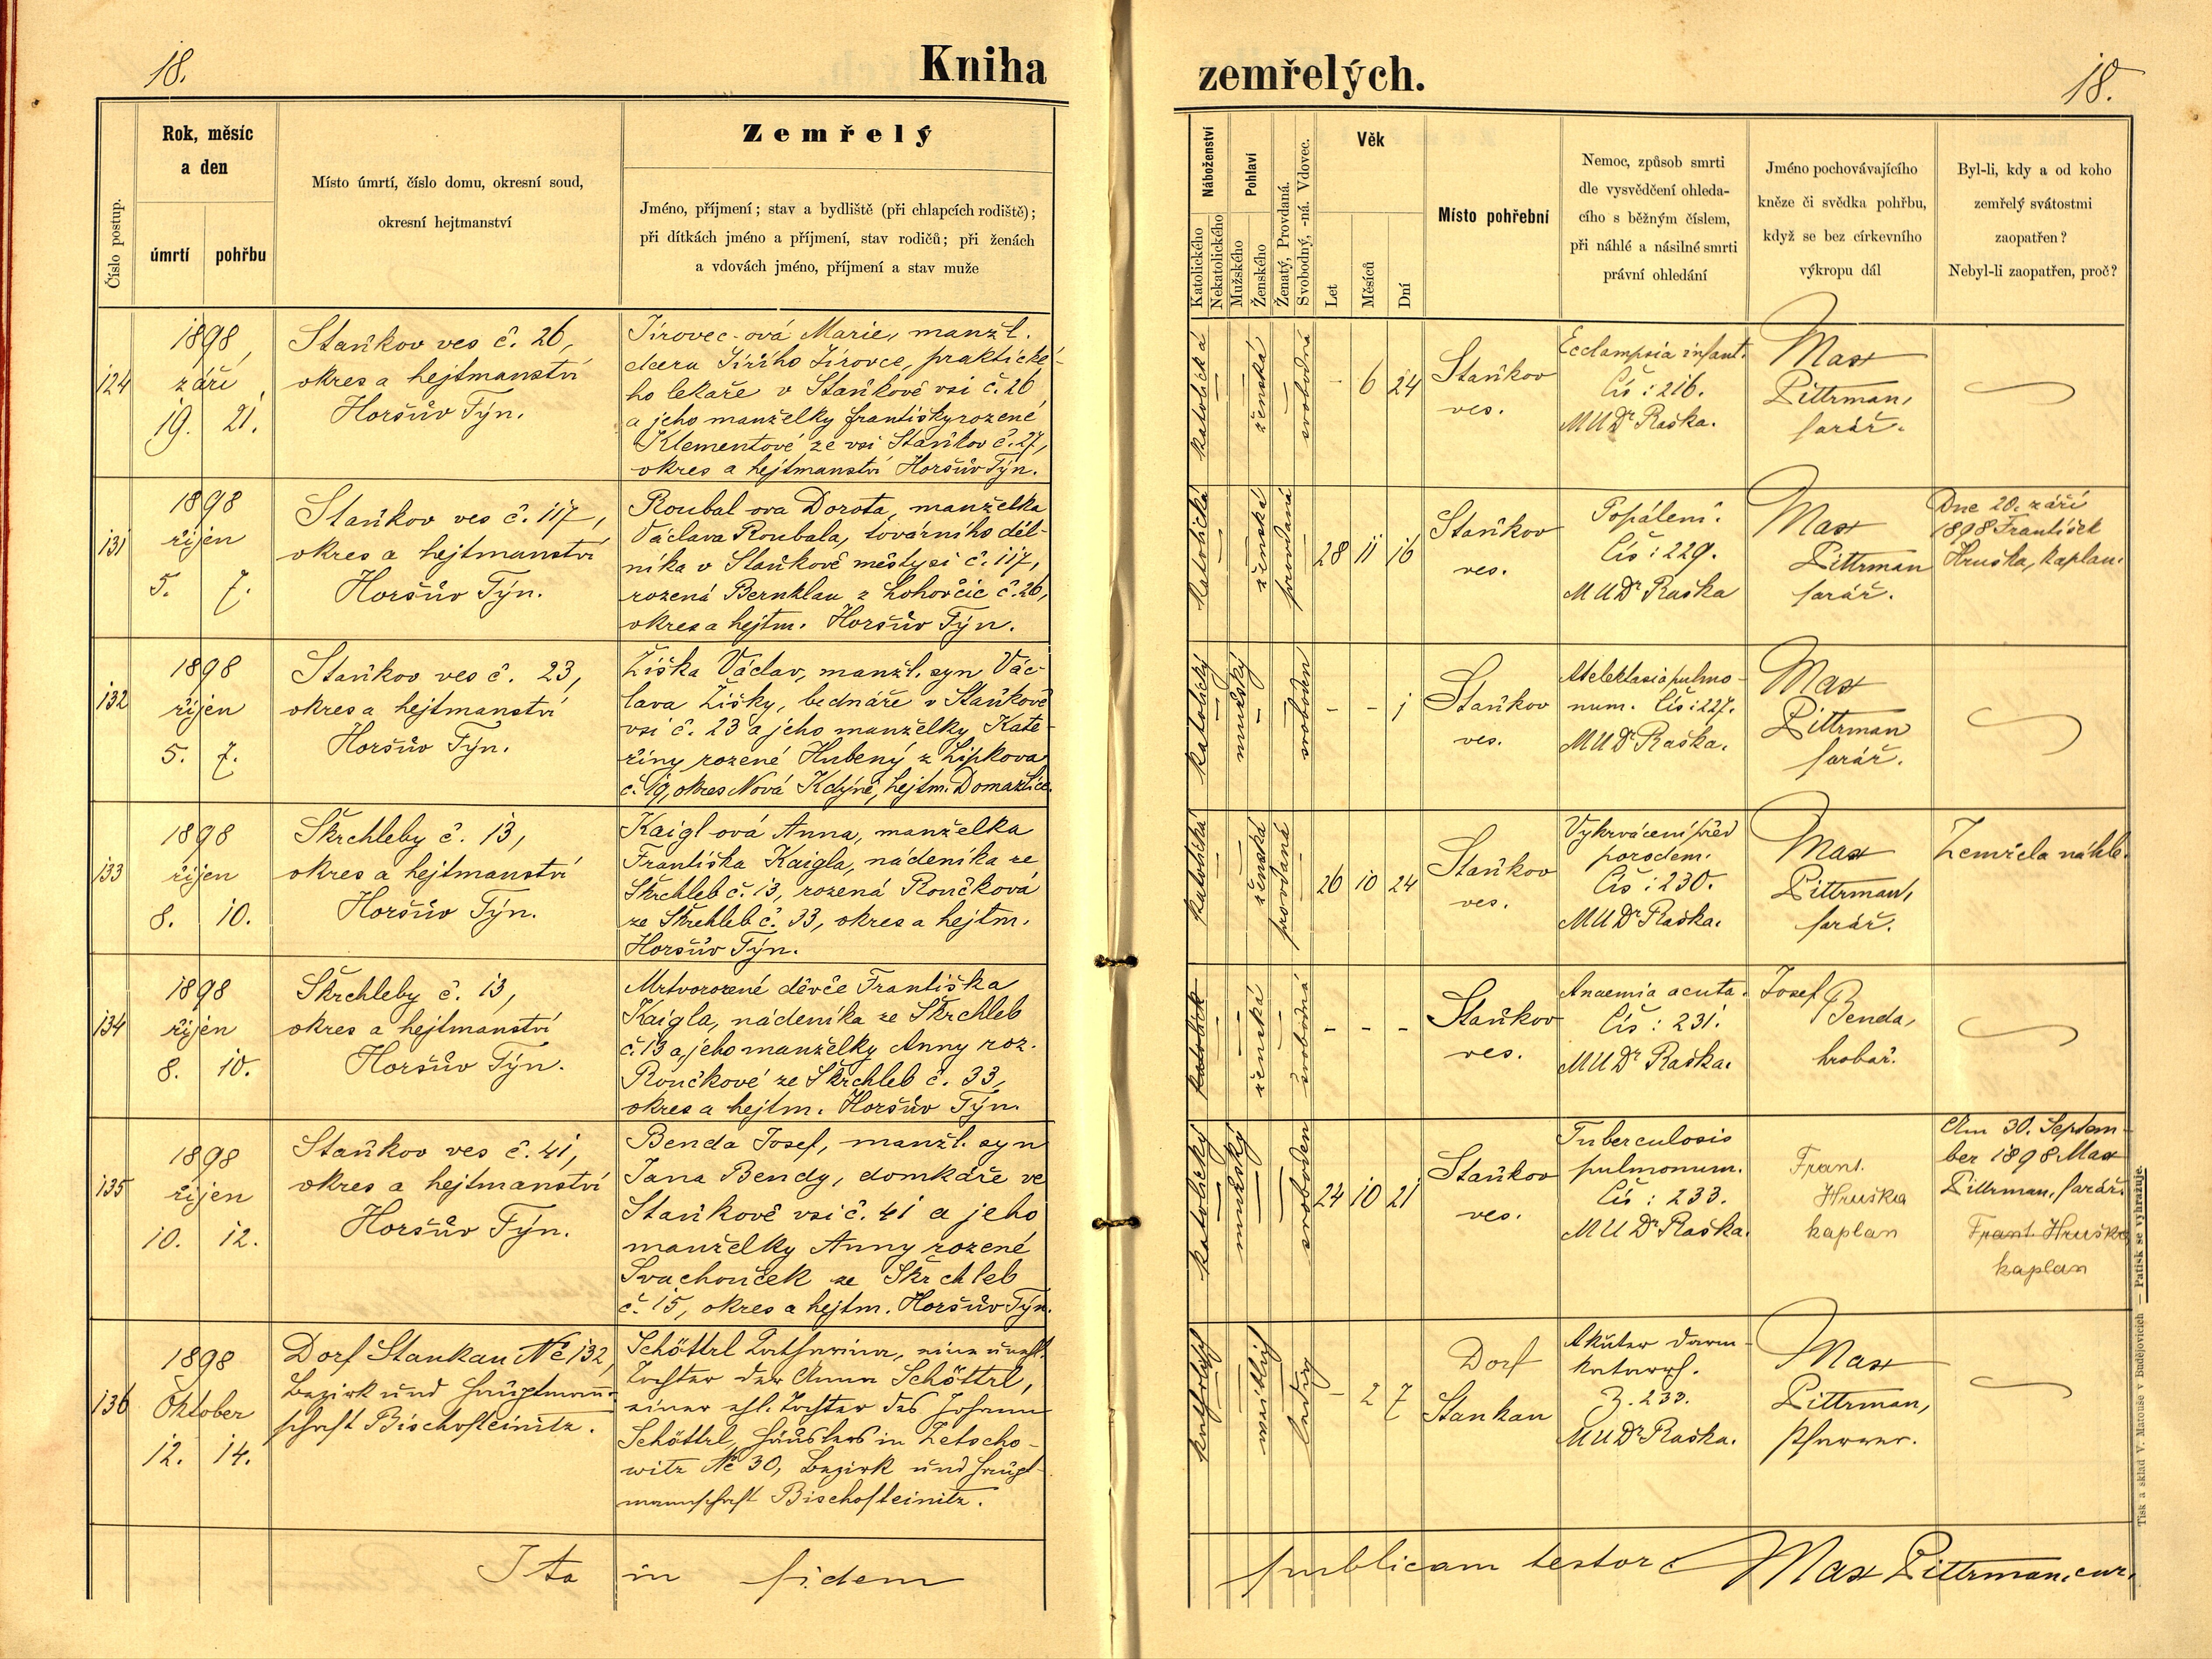 18.
Kniha
zemřelých.
18.
Číslo postup.
Rok, měsíc
a den
úmrtí
pohřbu
Místo úmrtí, číslo domu, okresní soud,
okresní hejtmanství
Zemřelý
Jméno, příjmení; stav a bydliště (při chlapcích rodiště);
při dítkách jméno a příjmení, stav rodičů; při ženách
a vdovách jméno, příjmení a stav muže
Náboženství
Katolického
Nekatolického
Pohlaví
Mužského
Ženského
Ženatý, Provdaná.
Svobodný, -ná. Vdovec.
Věk
Let
Měsíců
Dní
Místo pohřební
Nemoc, způsob smrti
dle vysvědčení ohleda-
cího s běžným číslem,
při náhlé a násilné smrti
právní ohledání
Jméno pochovávajícího
kněze či svědka pohřbu,
když se bez církevního
výkropu dál
Byl-li, kdy a od koho
zemřelý svátostmi
zaopatřen?
Nebyl-li zaopatřen, proč?
124
1898
září
19. 21.
Staňkov ves č. 26,
okres a hejtmanství
Horšův Týn.
Jírovec-ová Marie, manžl.
dcera Jiřího Jírovce, praktické-
ho lekaře v Staňkově vsi č. 26
a jeho manželky Františky rozené
Klementové ze vsi Staňkov č. 27,
okres a hejtmanství Horšův Týn.
katolická
ženská
svobodná
- 6 24
Staňkov
ves.
Ecclampsia infant.
Čís: 216.
MUDr Raška.
Max
Pittrman,
farář.
131
1898
říjen
5. 7.
Staňkov ves č. 117,
okres a hejtmanství
Horšův Týn.
Roubal-ova Dorota, manželka
Václava Roubala, továrního děl-
níka v Staňkově městysi č. 117,
rozená Bernklau z Lohovčic č. 26,
okres a hejtm. Horšův Týn.
katolická
ženská
provdaná
28 11 16
Staňkov
ves.
Popálení.
Čís: 229.
MUDr Raška
Max
Pittrman
farář.
Dne 20. září
1898 František
Hruška, kaplan.
132
1898
říjen
5. 7.
Staňkov ves č. 23,
okres a hejtmanství
Horšův Týn.
Žiška Václav, manžl. syn Vác-
lava Žišky, bednáře v Staňkově
vsi č. 23 a jeho manželky Kate-
řiny rozené Hubený z Lipkova
č. 19, okres Nová Kdýně, hejtm. Domažlice.
katolický
mužský
svoboden
- - 1
Staňkov
ves.
Atelektasia pulmo-
num. Čís: 227.
MUDr Raška.
Max
Pittrman
farář.
133
1898
říjen
8. 10.
Škrchleby č. 13,
okres a hejtmanství
Horšův Týn.
Kaigl-ová Anna, manželka
Františka Kaigla, nádeníka ze
Škrchleb č. 13, rozená Rončková
ze Škrchleb č. 33, okres a hejtm.
Horšův Týn.
katolická
ženská
provdaná
26 10 24
Staňkov
ves.
Vykrvácení před
porodem.
Čís: 230.
MUDr Raška.
Max
Pittrman,
farář.
Zemřela náhle.
134
1898
říjen
8. 10.
Škrchleby č. 13,
okres a hejtmanství
Horšův Týn.
Mrtvorozené děvče Františka
Kaigla, nádeníka ze Škrchleb
č. 13 a jeho manželky Anny roz.
Rončkové ze Škrchleb č. 33,
okres a hejtm. Horšův Týn.
ženská
svobodná
- - -
Staňkov
ves.
Anaemia acuta.
Čís: 231.
MUDr Raška.
Josef
Benda,
hrobař.
135
1898
říjen
10. 12.
Staňkov ves č. 41,
okres a hejtmanství
Horšův Týn.
Benda Josef, manžl. syn
Jana Bendy, domkáře ve
Staňkově vsi č. 41 a jeho
manželky Anny rozené
Svachouček ze Škrchleb
č. 15, okres a hejtm. Horšův Týn.
katolický
mužský
svoboden
24 10 21
Staňkov
ves.
Tuberculosis
pulmonum.
Čís: 233.
MUDr Raška.
Frant.
Hruška
kaplan
Am 30. Septem-
ber 1898 Max
Pittrman, farář.
Frant. Hruška
kaplan
136
1898
Oktober
12. 14.
Dorf Stankau № 132,
Bezirk und Hauptmann-
schaft Bischofteinitz.
Schöttrl Katharina, eine unehl.
Tochter der Anna Schöttrl,
einer ehl. Tochter des Johann
Schöttrl, Häuslers in Zetscho-
witz № 30, Bezirk und Haupt-
mannschaft Bischofteinitz.
katholisch
weiblich
ledig
- 2 7
Dorf
Stankau
Akuter Darm-
katarrh.
Z. 233.
MUDr Raška.
Max
Pittrman,
Pfarrer.
Ita in fidem publicam testor: Max Pittrman, cur.
Tisk a sklad V. Matouše v Budějovicích — Patisk se vyhražuje.